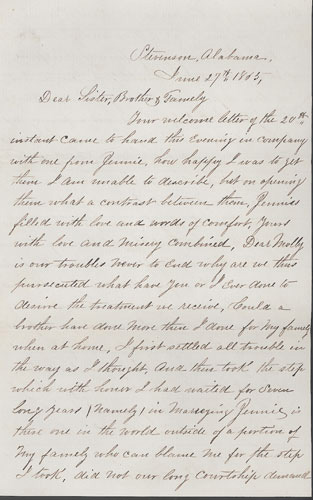 Stevenson, Alabama,
June 27th 1865,
Dear Sister, Brother & Famely
Your welcome letter of the 20th
instant came to hand this Evening in company
with one from Jennie, how happy I was to get
them I am unable to describe, but on opening
them what a contrast between them, Jennies
filled with love and words of comfort, Yours
with love and misery combined, Dear Molly
is our troubles never to End why are we thus
pursecuted what have you or I Ever done to
desirve the treatment we receive, Could a
brother have done More then I done for My family
when at home, I first settled all trouble in
the way as I thought, And then took the step
which with honor I had waited for Seven
long years (Namely) in Marrying Jennie, is
there one in the world outside of a portion of
My famely who can blame Me for the step
I took, did not our long Courtship demand